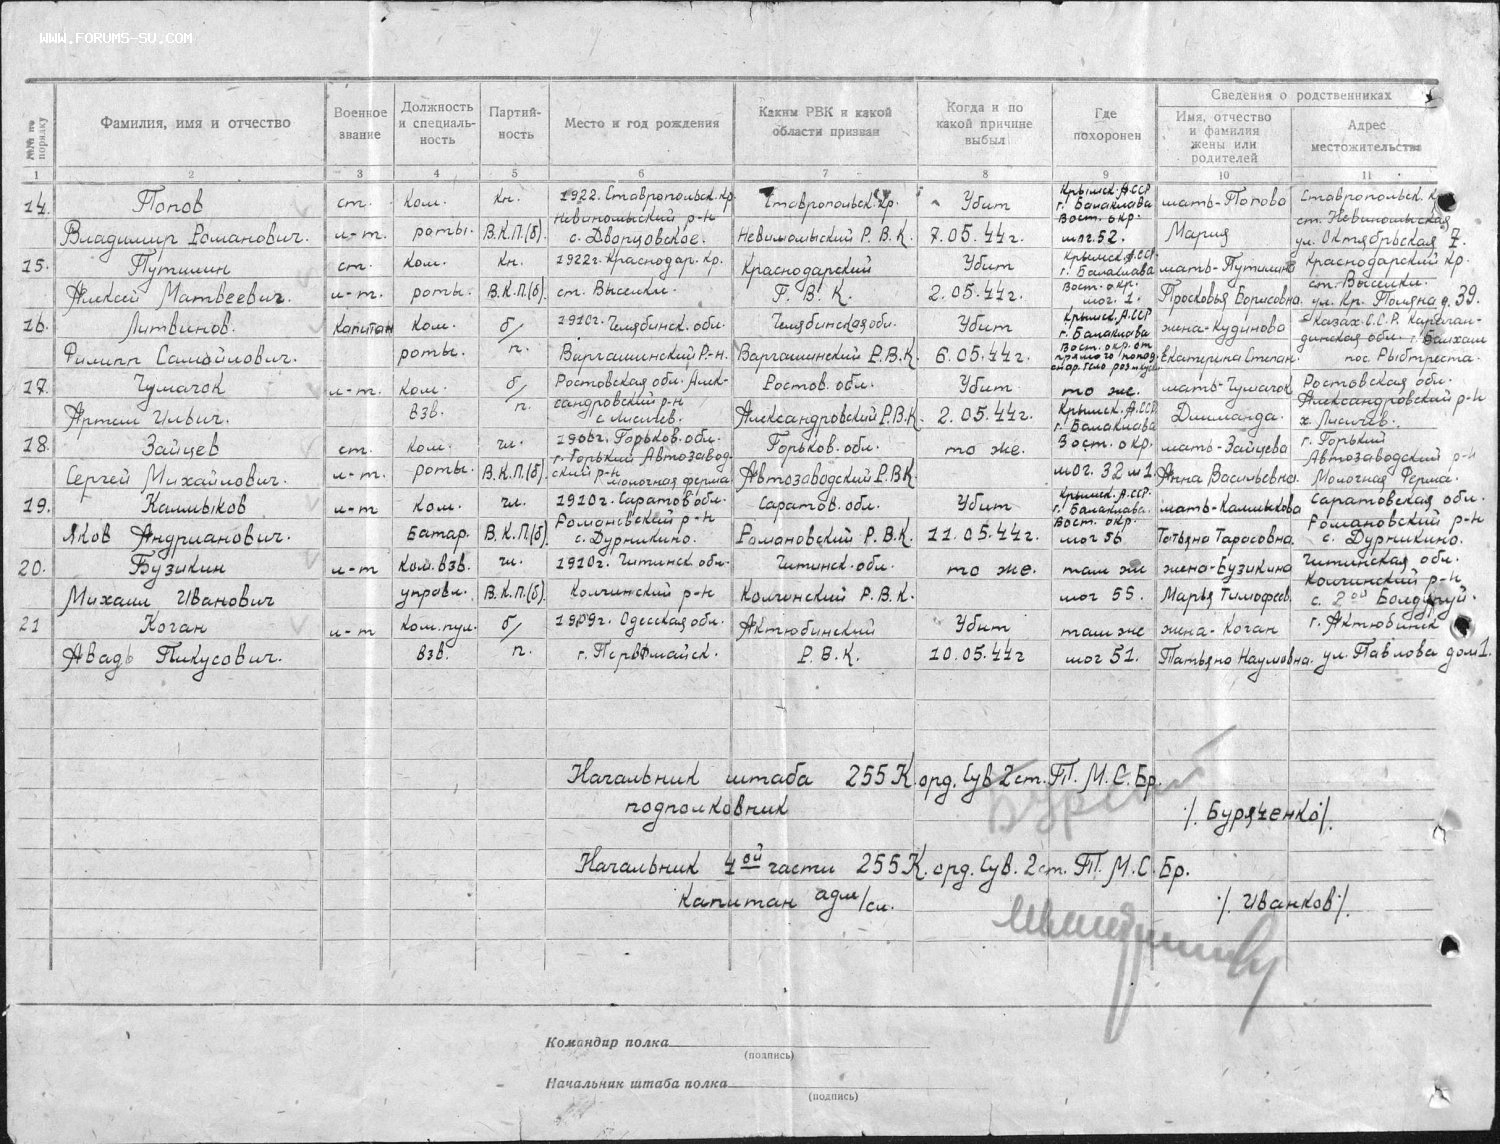 WWW.FORUMS-SU.COM
№№ по порядку
Фамилия, имя и отчество
Военное звание
Должность и специаль-ность
Партий-ность
Место и год рождения
Каким РВК и какой области призван
Когда и по какой причине выбыл
Где похоронен
Сведения о родственниках
Имя, отчество и фамилия жены или родителей
Адрес местожительства
1 2 3 4 5 6 7 8 9 10 11
14. Попов ст. Ком. Кн. 1922. Ставропольск. кр. Ставропольск. кр. Убит Крымск. АССР г. Балаклава мать-Попова Ставропольск. к
Владимир Романович. л-т. роты. В.К.П.(б) Невиномыский р-н с. Дворцовское. Невиномыский Р.В.К. 7.05.44г. Вост. окр. мог. 52. Мария ст. Невиномыская ул. Октябрьская 7.
15. Путилин ст. Ком. Кн. 1922г. Краснодар. кр. Краснодарский Убит Крымск. А.ССР. г. Балаклава мать-Путилина Краснодарский кр.
Алексей Матвеевич. л-т. роты. В.К.П.(б). ст. Выселки. Г.В.К. 2.05.44г. Вост. окр. мог. 1. Просковья Борисовна ст. Выселки. ул. Кр. Поляна д. 39.
16. Литвинов. Капитан Ком. б/ 1910г. Челябинск. обл. Челябинская обл. Убит Крымск. А.ССР г. Балаклава жена-Кудинова Казах.С.С.Р. Караган-динская обл. г. Балхаш
Филипп Самойлович. роты. п. Варгашинский Р-н. Варгашинский Р.В.К. 6.05.44г. Вост. окр. от Екатерина Степан. пос. Рыбтреста.
17. Чумачок л-т. Ком. б/ Ростовская обл. Алек-сандровский р-н Ростов. обл. Убит то же. мать-Чумачок Ростовская обл.
Артем Ильич. Взв. п. с. Лисичев. Александровский Р.В.К. 2.05.44г. Крымск. А.ССР. г. Балаклава Александровский р-н х. Лисичев.
18. Зайцев ст. Ком. чл. 1906г. Горьков. обл. Горьков. обл. то же. Вост. окр. мать-Зайцева г. Горький
Сергей Михайлович. л-т. роты. В.К.П.(б) г. Горький Автозавод-ский р-н молочная ферма Автозаводский Р.В.К. мог. 32 Анна Васильевна. Автозаводский р-н Молочная Ферма.
19. Калмыков л-т Ком. чл. 1910г. Саратов обл. Саратов. обл. Убит Крымск. А.ССР. г. Балаклава. мать-Калмыкова Саратовская обл.
Яков Андрианович. Батар. В.К.П.(б). Романовский р-н с. Дурникино. Романовский Р.В.К. 11.05.44г. Вост. окр. мог 56 Татьяна Тарасовна. Романовский р-н с. Дурникино.
20. Бузикин л-т Ком. взв. чл. 1910г. Читинск. обл. Читинск. обл. то же. там же жена-Бузикина Читинская обл.
Михаил Иванович управл. В.К.П.(б) Колчинский р-н Колчинский Р.В.К. мог 55. Марья Тимофеев. Колчинский р-н с. 2ой
21 Коган л-т Ком. пул. б/ 1909г. Одесская обл. Актюбинский Убит там же жена-Коган г. Актюбинск
Авадь Пикусович. Взв. п. г. Первомайск. Р.В.К. 10.05.44г мог 51. Татьяна Наумовна. ул. Павлова дом 1.
Начальник штаба 255 К. орд. Сув 2 ст. Т. М. С. Бр.
подполковник /. Буряченко /.
Начальник 4ой части 255 К. орд. Сув. 2 ст. Т. М. С. Бр.
Капитан адм/сл. /. Иванков /.
Командир полка
(подпись)
Начальник штаба полка
(подпись)